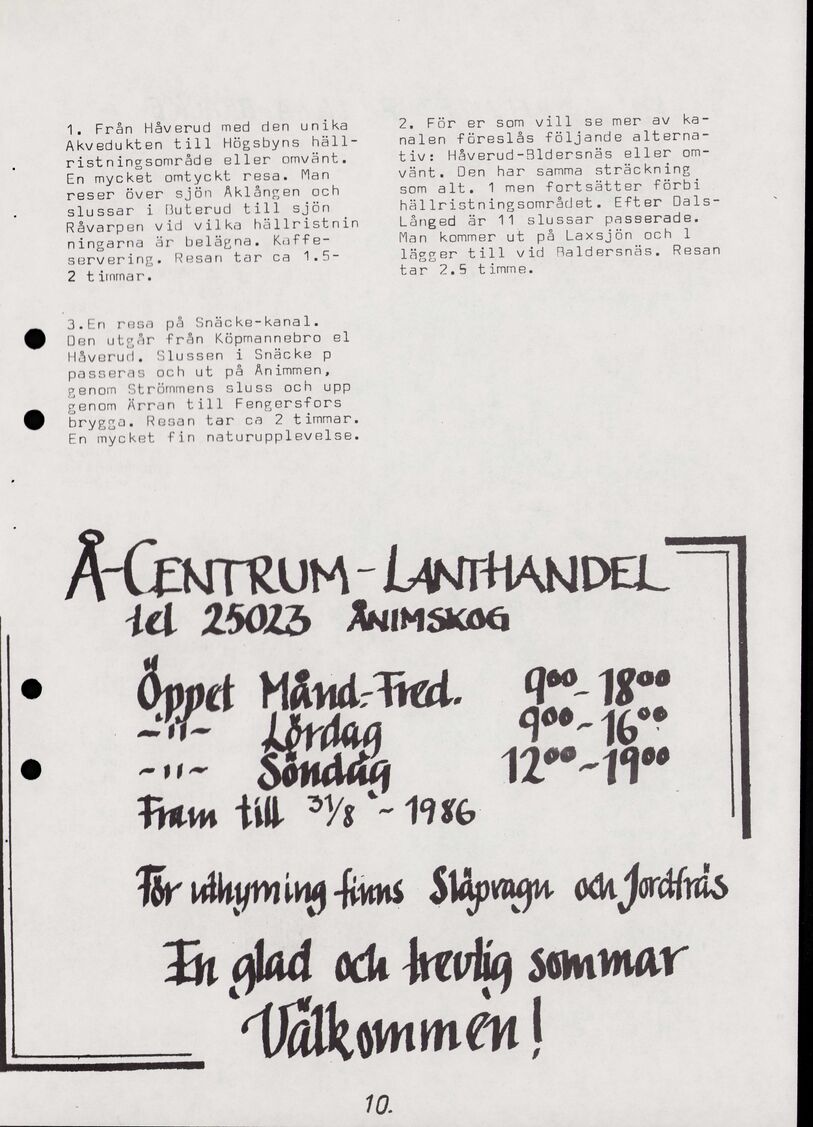 1. Från Håverud med den unika
Akvedukten till Högsbyns häll-
ristningsområde eller omvänt.
En mycket omtyckt resa. Man
reser över sjön Åklången och
slussar i Buterud till sjön
Råvarpen vid vilka hällristnin
ningarna är belägna. Kaffe-
servering. Resan tar ca 1.5-
2 timmar.
2. För er som vill se mer av ka-
nalen föreslås följande alterna-
tiv: Håverud-Bldersnäs eller om-
vänt. Den har samma sträckning
som alt. 1 men fortsätter förbi
hällristningsområdet. Efter Dals-
Långed är 11 slussar passerade.
Man kommer ut på Laxsjön och l
lägger till vid Baldersnäs. Resan
tar 2.5 timme.
3.En resa på Snäcke-kanal.
Den utgår från Köpmannebro el
Håverud. Slussen i Snäcke p
passeras och ut på Ånimmen,
genom Strömmens sluss och upp
genom Ärran till Fengersfors
brygga. Resan tar ca 2 timmar.
En mycket fin naturupplevelse.
Å-CENTRUM-LANTHANDEL
tel 25023 ÅNIMSKOG
Öppet Månd.-Fred. 9⁰⁰-18⁰⁰
-"- Lördag 9⁰⁰-16⁰⁰
-"- Söndag 12⁰⁰-19⁰⁰
Fram till 31/8 - 1986
För uthyrning finns Släpvagn och Jordfräs
En glad och trevlig sommar
Välkommen!
10.